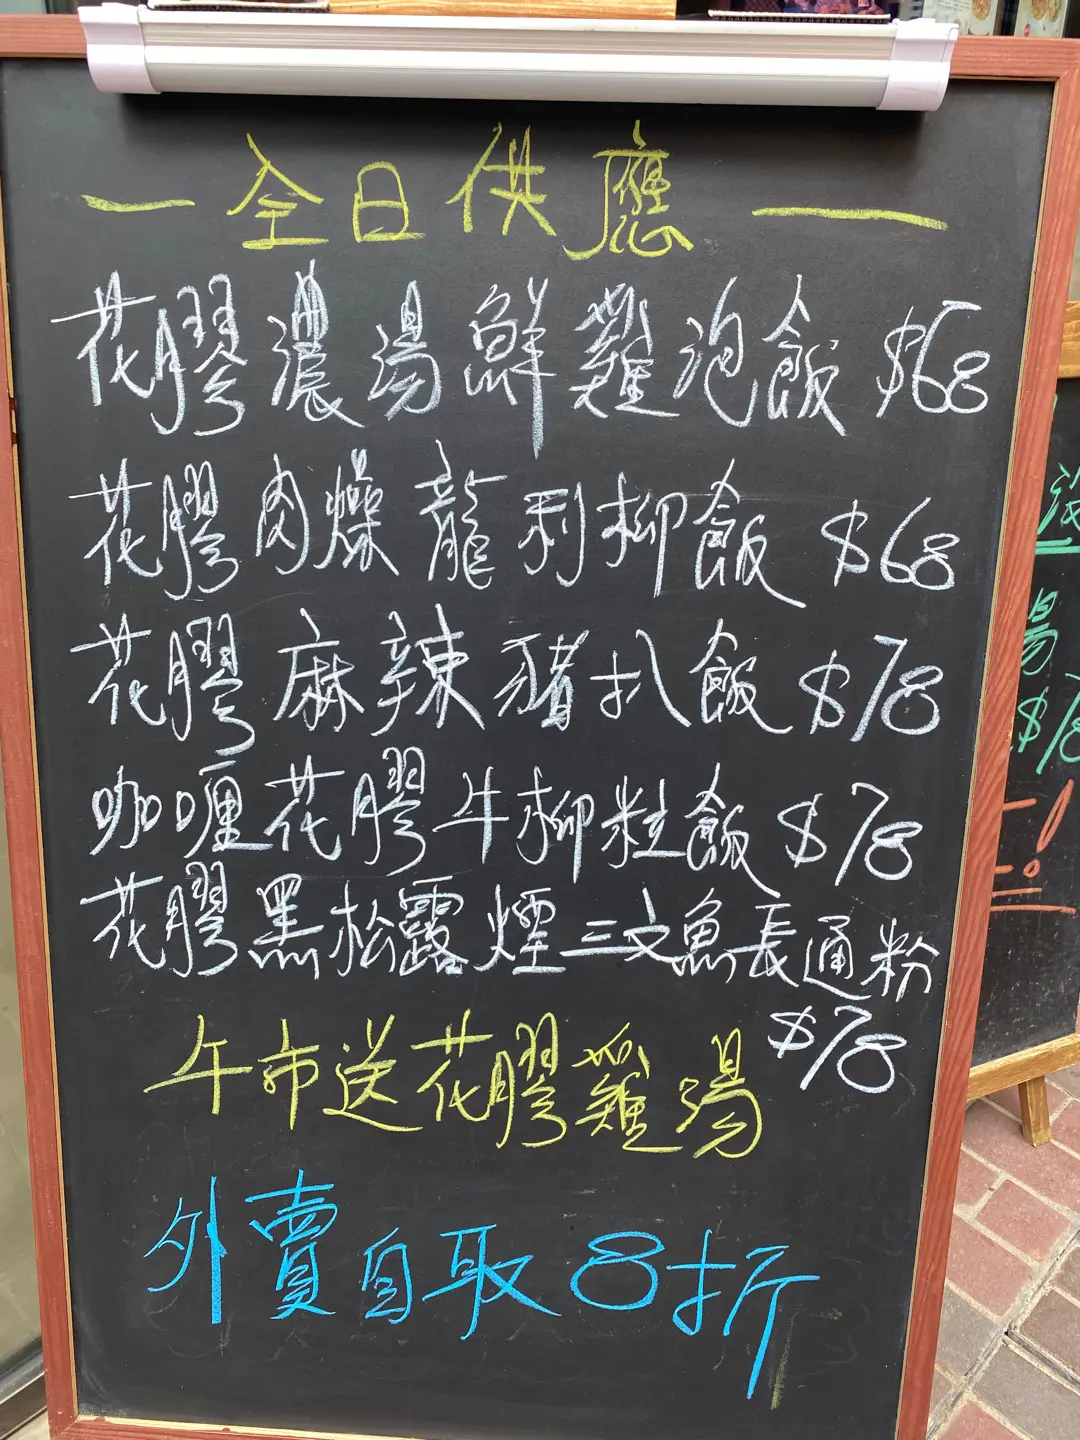 — 全日供應 —
花膠濃湯鮮雞泡飯 $68
花膠肉燥龍利柳飯 $68
花膠麻辣豬扒飯 $78
咖喱花膠牛柳粒飯 $78
花膠黑松露煙三文魚長通粉
$78
午市送花膠雞湯
外賣自取8折
湯
$78
!